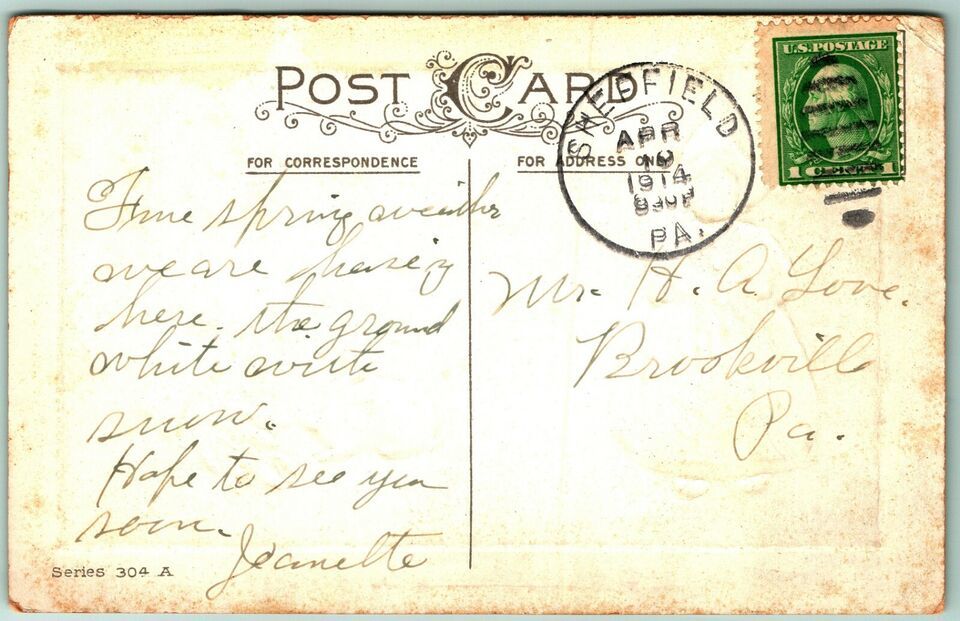 POST CARD
FOR CORRESPONDENCE
FOR ADDRESS ONLY
SHEFFIELD
APR
1914
PA.
U.S. POSTAGE
1 1
Fine spring weather
we are haveing
here. the ground
white with
snow.
Hope to see you
soon.
Jeanette
Mr. H. A. Love.
Brookville
Pa.
Series 304 A